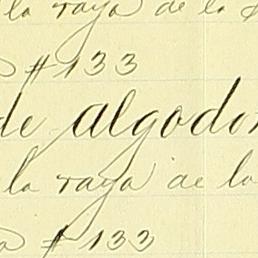 la raya de la
# 133
de algodon
la raya de la
# 133